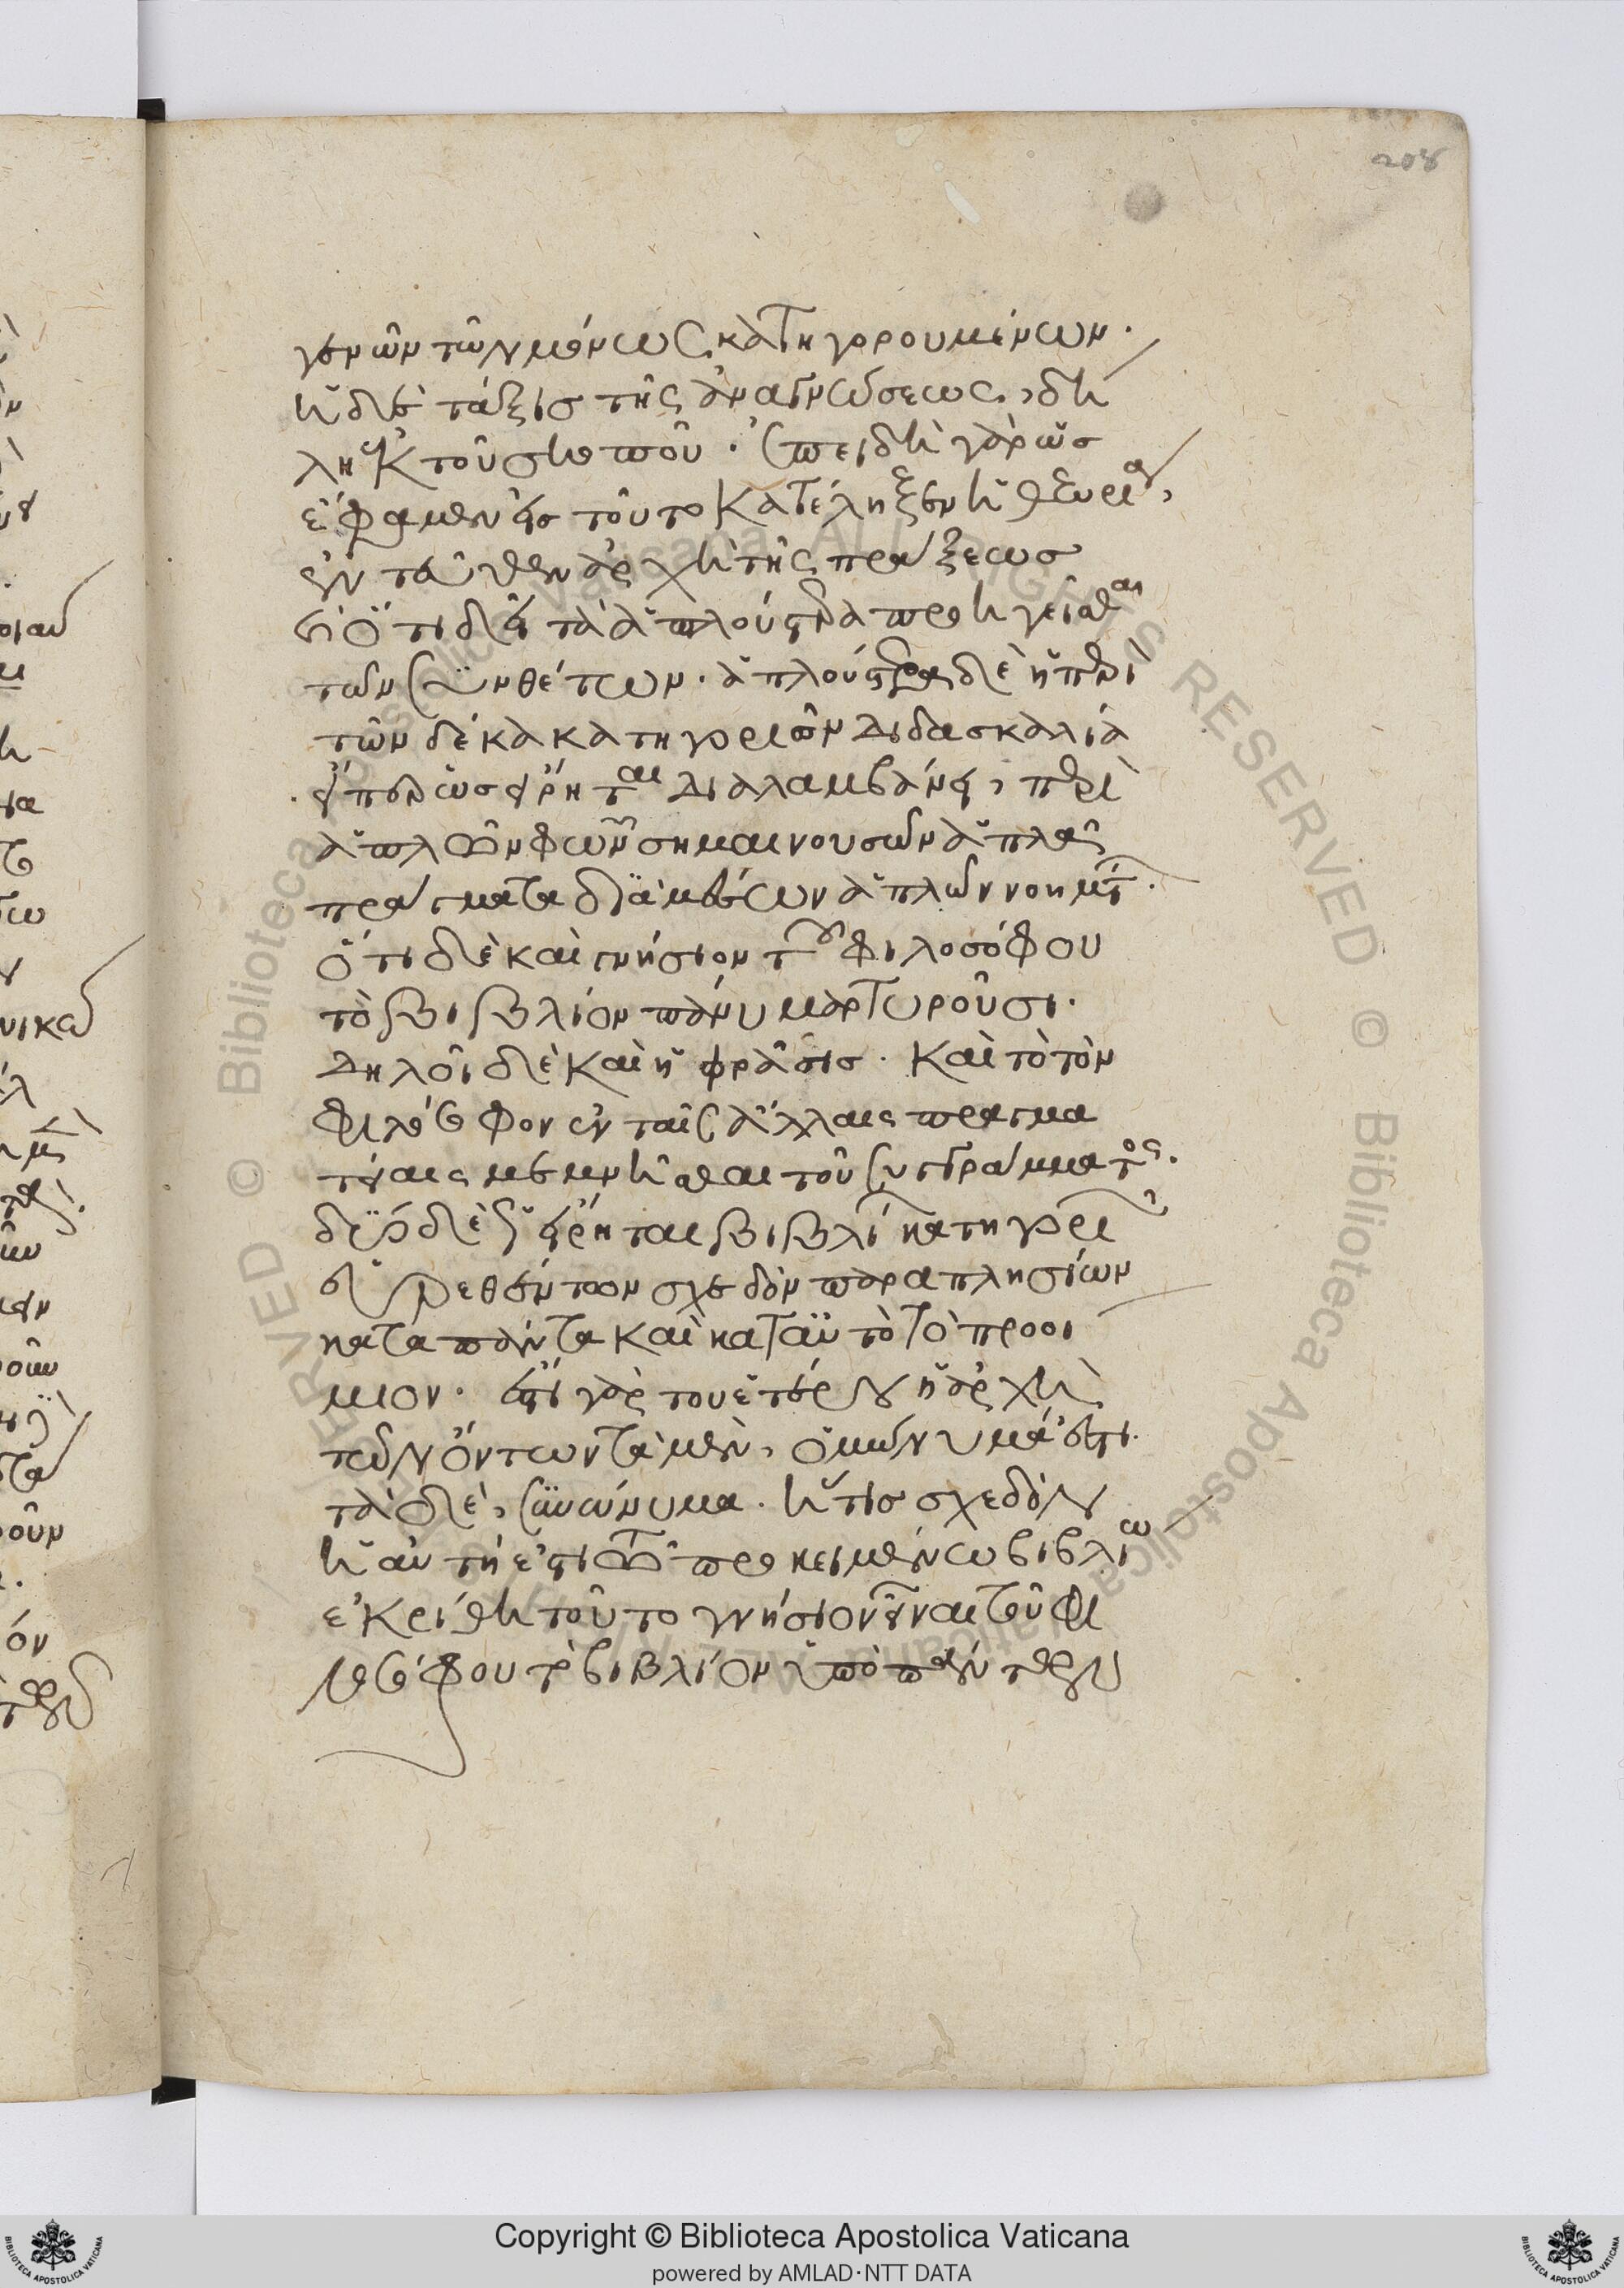 208
γενῶν τῶν μόνως κατηγορουμένων.
ἡ δὲ τάξις τῆς ἀναγνώσεως, δή
λη ἐκ τοῦ σκοποῦ. ἐπειδὴ γὰρ ὡς
ἔφαμεν εἰς τοῦτο κατέληξεν ἡ θεωρία,
ἐντεῦθεν ἀρχὴ τῆς πράξεως
ὅτι δεῖ τὰ ἁπλούστερα προηγεῖσθαι
τῶν συνθέτων. ἁπλούστερα δὲ ἡ περὶ
τῶν δέκα κατηγοριῶν διδασκαλία
εἴπερ ὡς εἴρηται διαλαμβάνει, περὶ
ἁπλῶν φωνῶν σημαινουσῶν ἁπλᾶ
πράγματα διὰ μέσων ἁπλῶν νοημάτ.
ὅτι δὲ καὶ γνήσιον τοῦ φιλοσόφου
τὸ βιβλίον πάνυ μαρτυροῦσι.
δηλοῖ δὲ καὶ ἡ φράσις. καὶ τὸ τὸν
φιλόσοφον ἐν ταῖς ἄλλαις πραγμα
τείαις μεμνῆσθαι τοῦ συγγράμματος.
δύο δὲ εὕρηται βιβλί κατηγορι
εὑρεθέντων σχεδὸν παραπλησίων
κατὰ πάντα καὶ κατ αὐτὸ τὸ προοί
μιον. ἔστι γὰρ τοῦ ἑτέρου ἡ ἀρχὴ
τῶν ὄντων τὰ μὲν, ὁμώνυμά ἐστι.
τὰ δὲ, συνώνυμα. ἥτις σχεδὸν
ἡ αὐτή ἐστι τῶ προκειμένω βιβλίω
ἐκρίθη τοῦτο γνήσιον εἶναι τοῦ φι
λοσόφου τὸ βιβλίον ὑπὸ πάντων
Copyright © Biblioteca Apostolica Vaticana
powered by AMLAD·NTT DATA